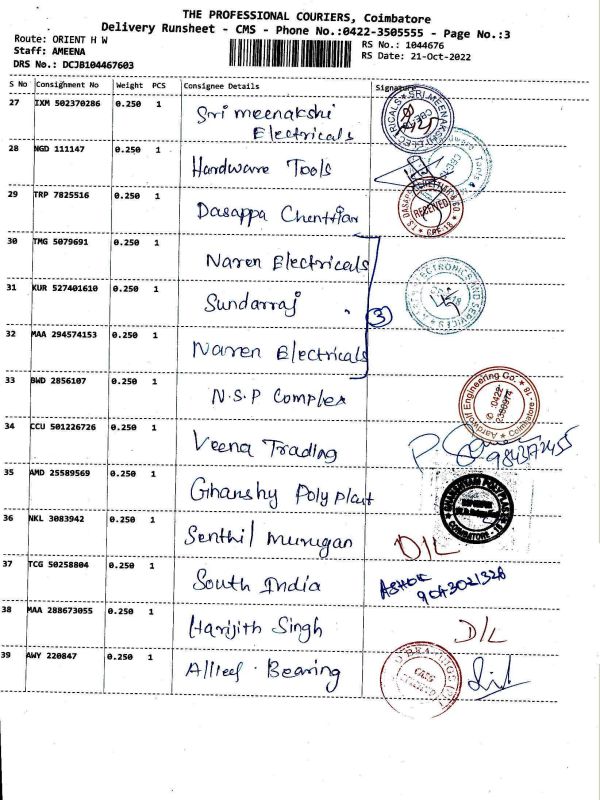 THE PROFESSIONAL COURIERS, Coimbatore
Delivery Runsheet - CMS - Phone No.:0422-3505555 - Page No.:3
Route: ORIENT H W
RS No.: 1044676
Staff: AMEENA
RS Date: 21-Oct-2022
DRS No.: DCJB104467603
S No Consignment No Weight PCS Consignee Details Signature
27 IXM 502370286 0.250 1 Sri meenakshi
Electricals
28 NGD 111147 0.250 1 Hardware Tools
29 TRP 7825516 0.250 1 Dasappa Chentriar
RECEIVED
30 TMG 5079691 0.250 1 Naren Electricals
31 KUR 527401610 0.250 1 Sundarraj
3
32 MAA 294574153 0.250 1 Naren Electricals
33 BWD 2856107 0.250 1 N.S.P Complex
Aardwolf Engineering Co.
Coimbatore - 18
34 CCU 501226726 0.250 1 Veena Trading
35 AMD 25589569 0.250 1 Ghanshy Poly plast
GHANSHYAM POLYPLAST
COIMBATORE
36 NKL 3083942 0.250 1 Senthil murugan D/L
37 TCG 50258804 0.250 1 South India ASHOK
9043021328
38 MAA 288673055 0.250 1 Harijith Singh D/L
39 AWY 220847 0.250 1 Allied. Bearing